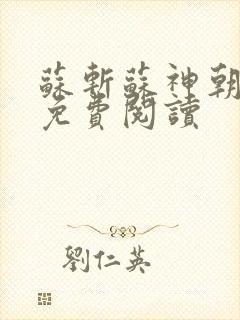 蘇斬蘇神朝
免費閱讀
劉仁英